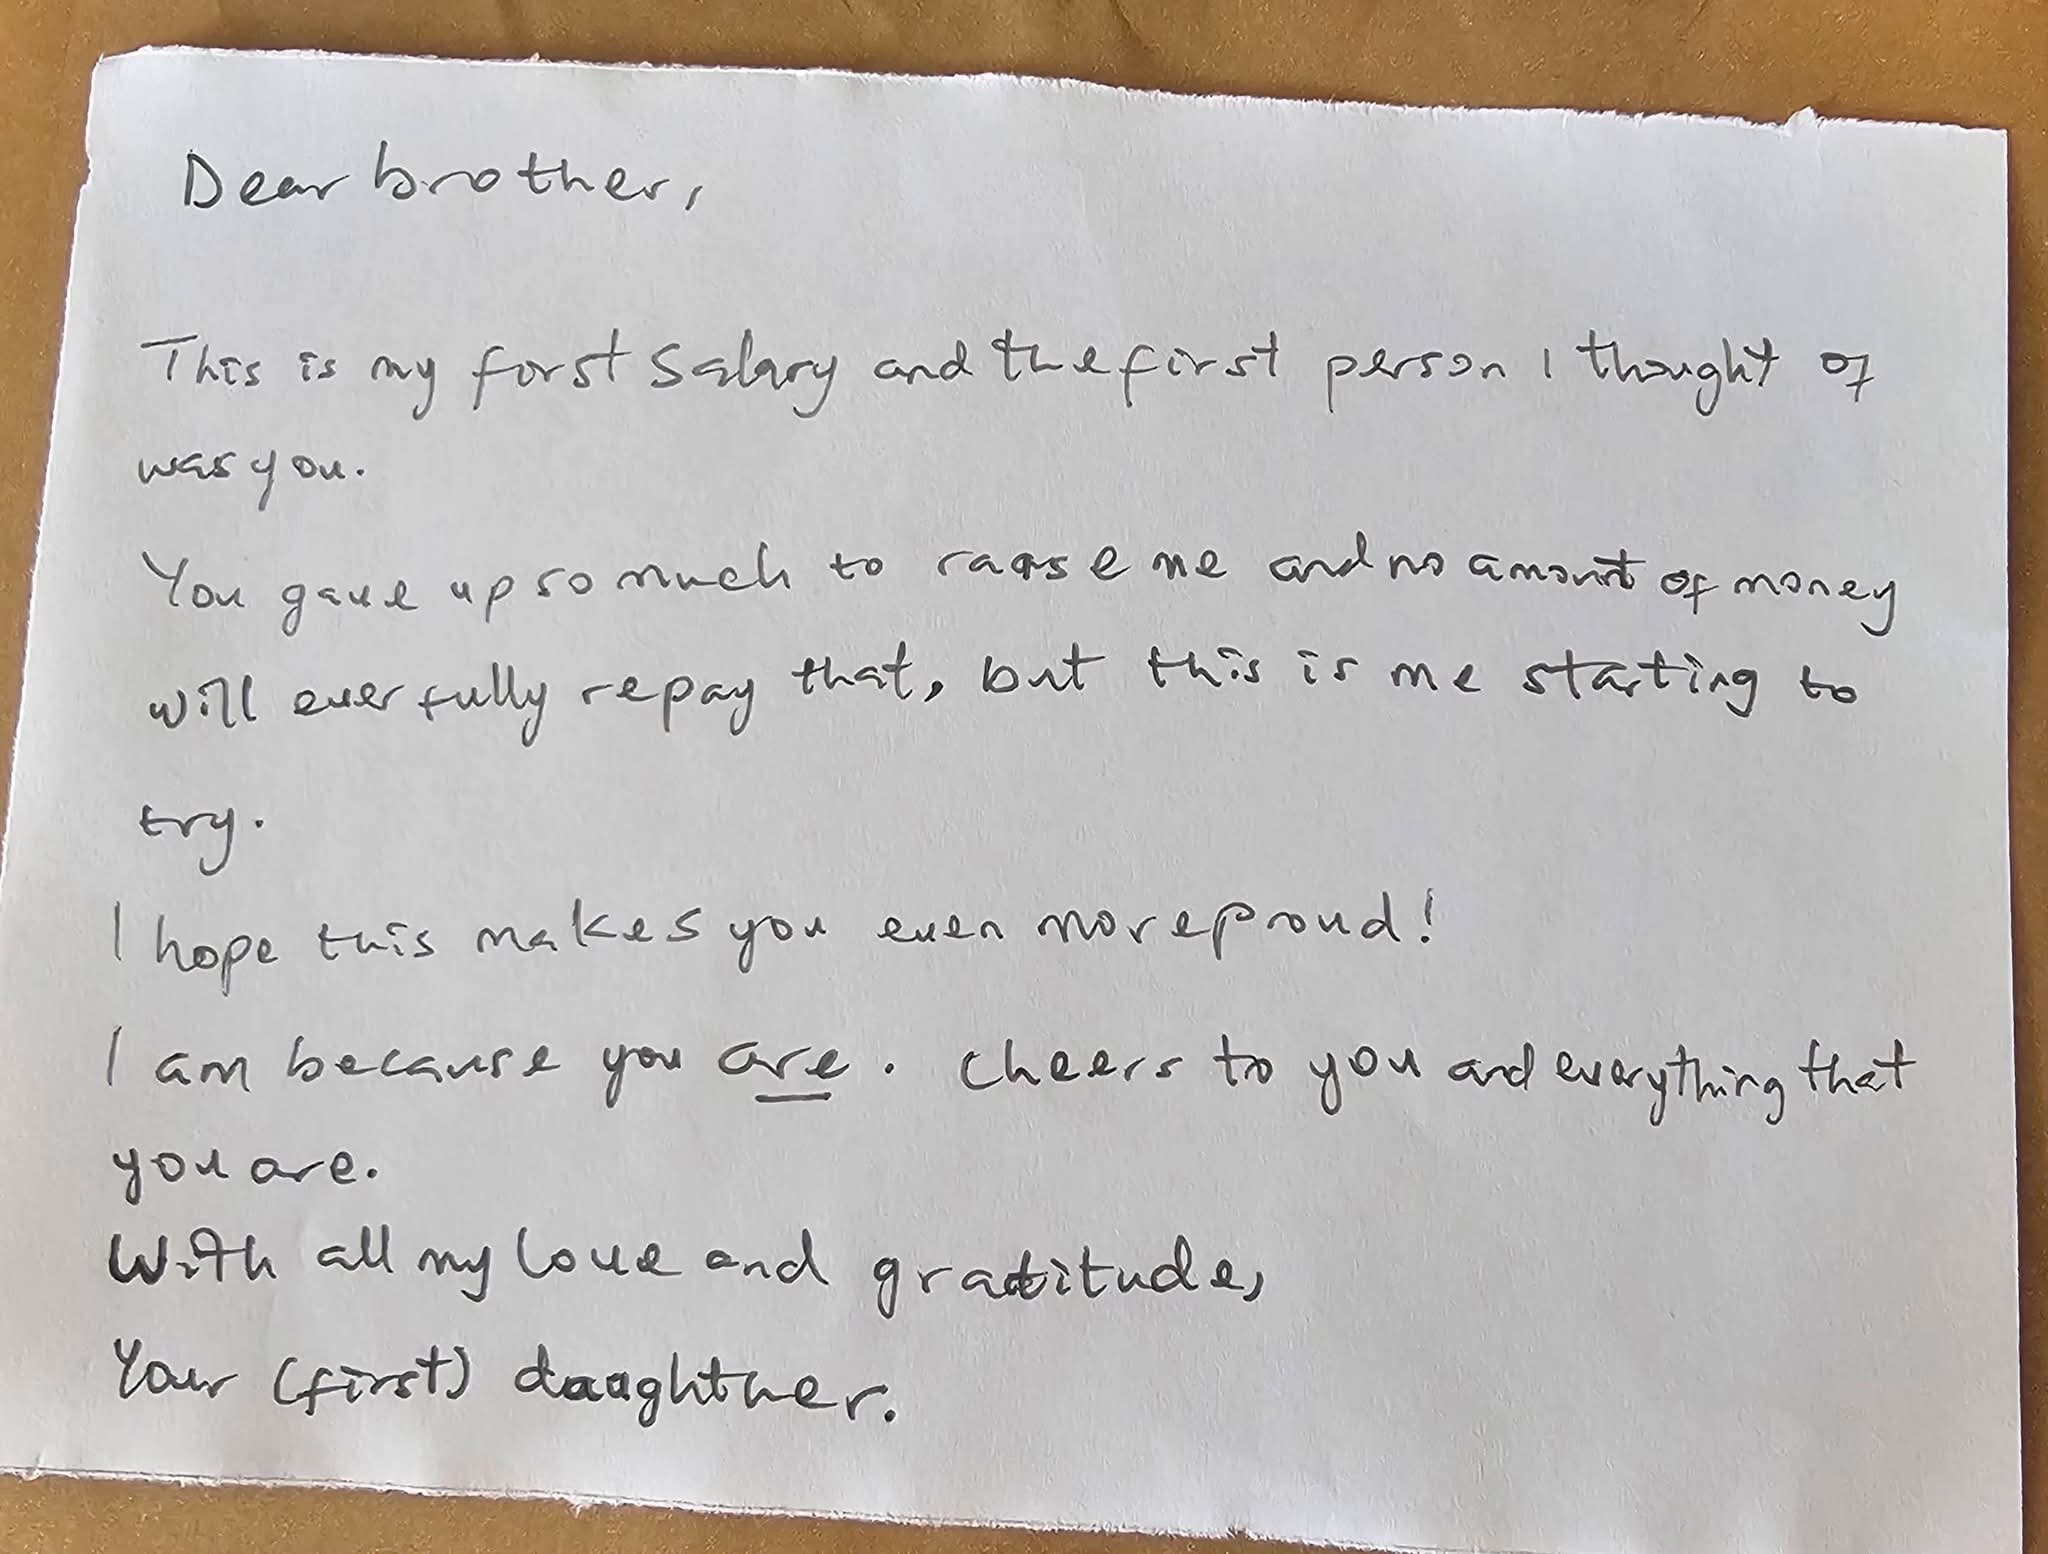 Dear brother,
This is my first salary and the first person I thought of
was you.
You gave up so much to raise me and no amount of money
will ever fully repay that, but this is me starting to
try.
I hope this makes you even more proud!
I am because you are. Cheers to you and everything that
you are.
With all my love and gratitude,
Your (first) daughther.